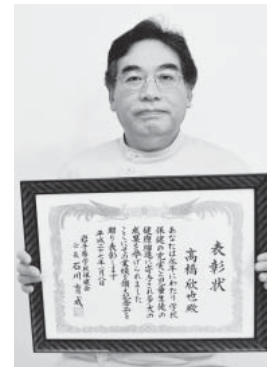 表彰状
高橋欣也殿
あなたは永年にわたり学校
保健の充実と児童生徒の
健康増進に寄与され多大の
成果を挙げられました
ここにその業績を讃え記念品を
贈り表彰します
平成二十七年八月八日
岩手県学校保健会
会長 石川育成